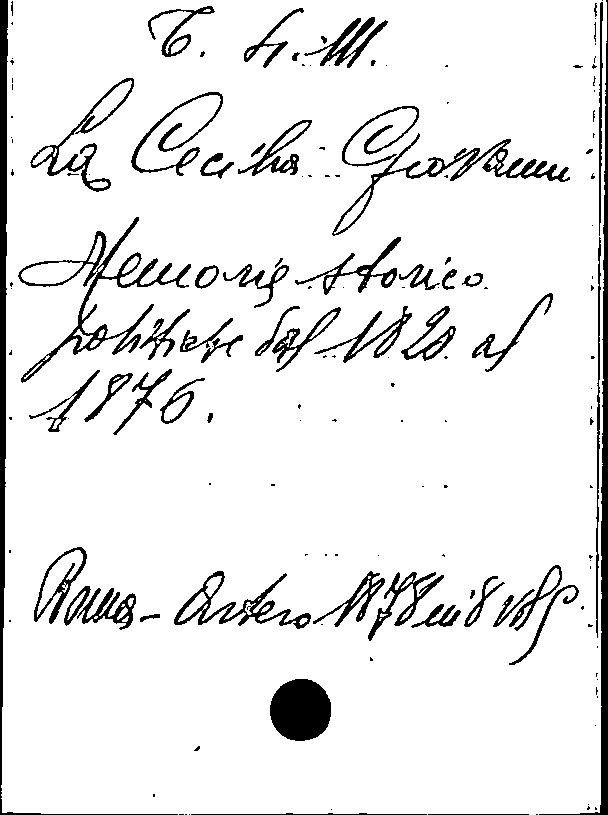 La Cecilia Giovanni
Memorie storico
politiche dal 1820 al
1876.
Roma - Artero 1878 in 8 vol